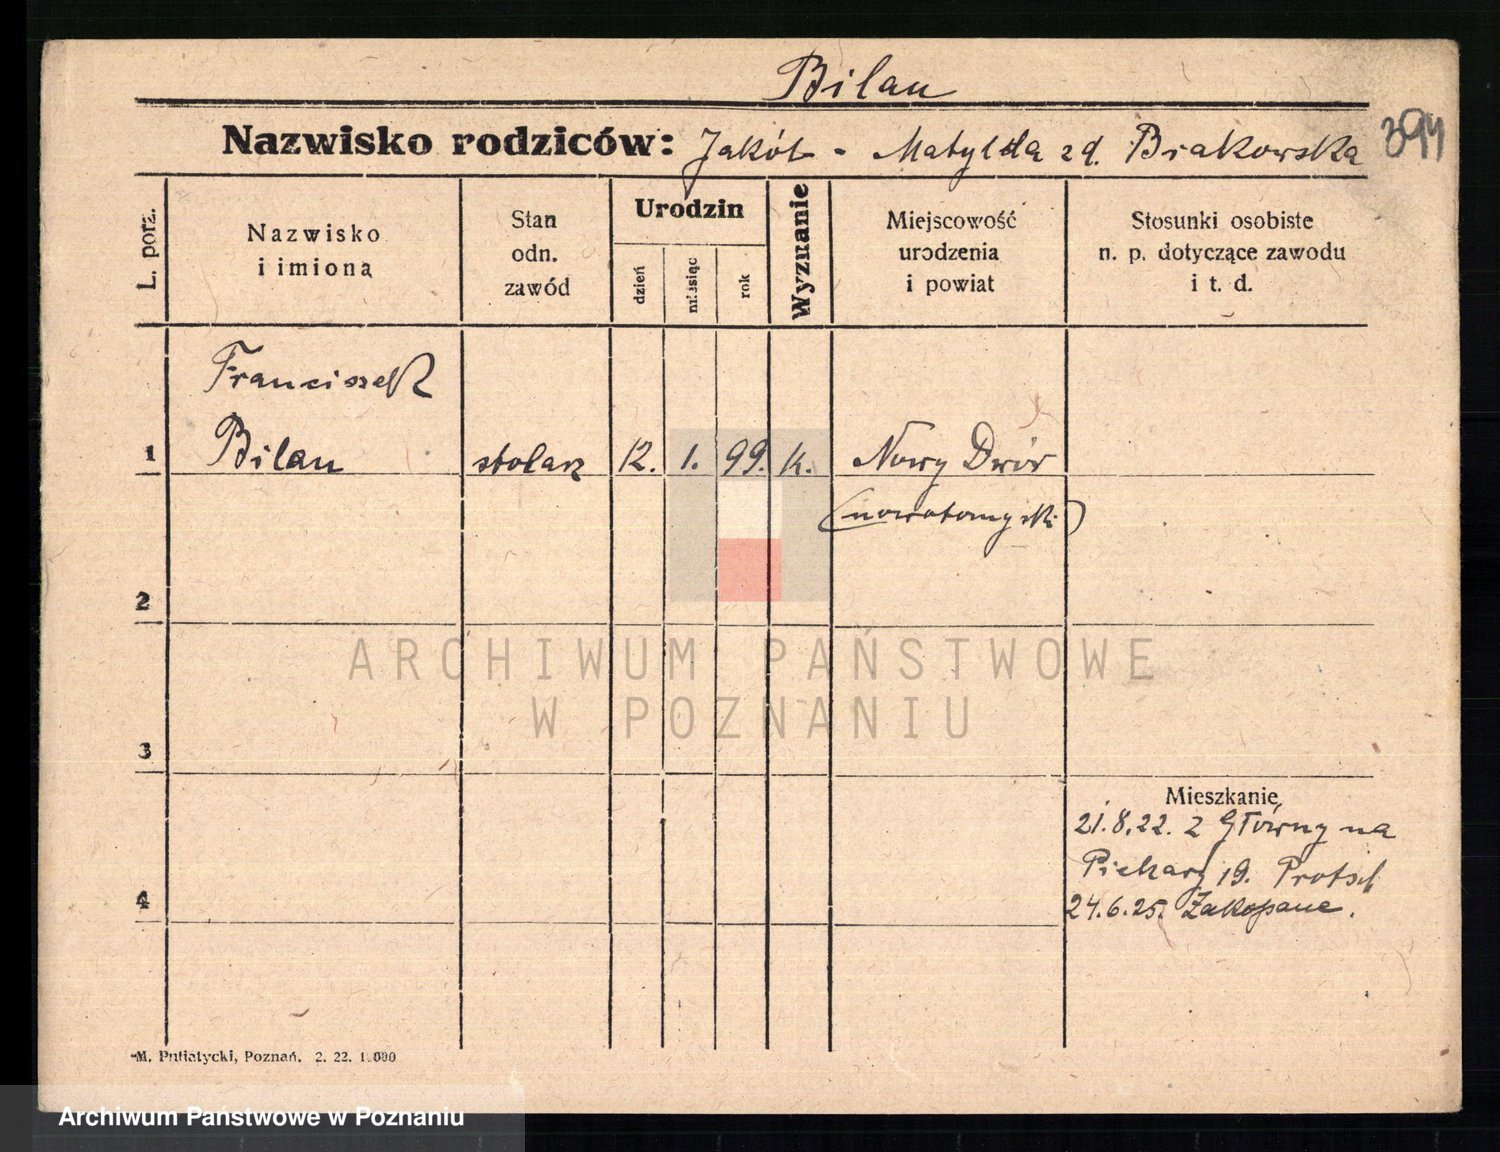 Bilau
Nazwisko rodziców: Jakób - Matylda zd. Biakowska
394
L. porz.
Nazwisko
i imiona
Stan
odn.
zawód
Urodzin
dzień
miesiąc
rok
Wyznanie
Miejscowość
urodzenia
i powiat
Stosunki osobiste
n. p. dotyczące zawodu
i t. d.
Franciszek
1 Bilau stolarz 12. 1. 99. k. Nowy Dwór
(nowotomyski)
2
ARCHIWUM PAŃSTWOWE
W POZNANIU
3
Mieszkanie
21.8.22. z Główny na
Piekary 19.
4 24.6.25. Zakopane.
M. Putiatycki, Poznań. 2. 22. 1.000
Archiwum Państwowe w Poznaniu